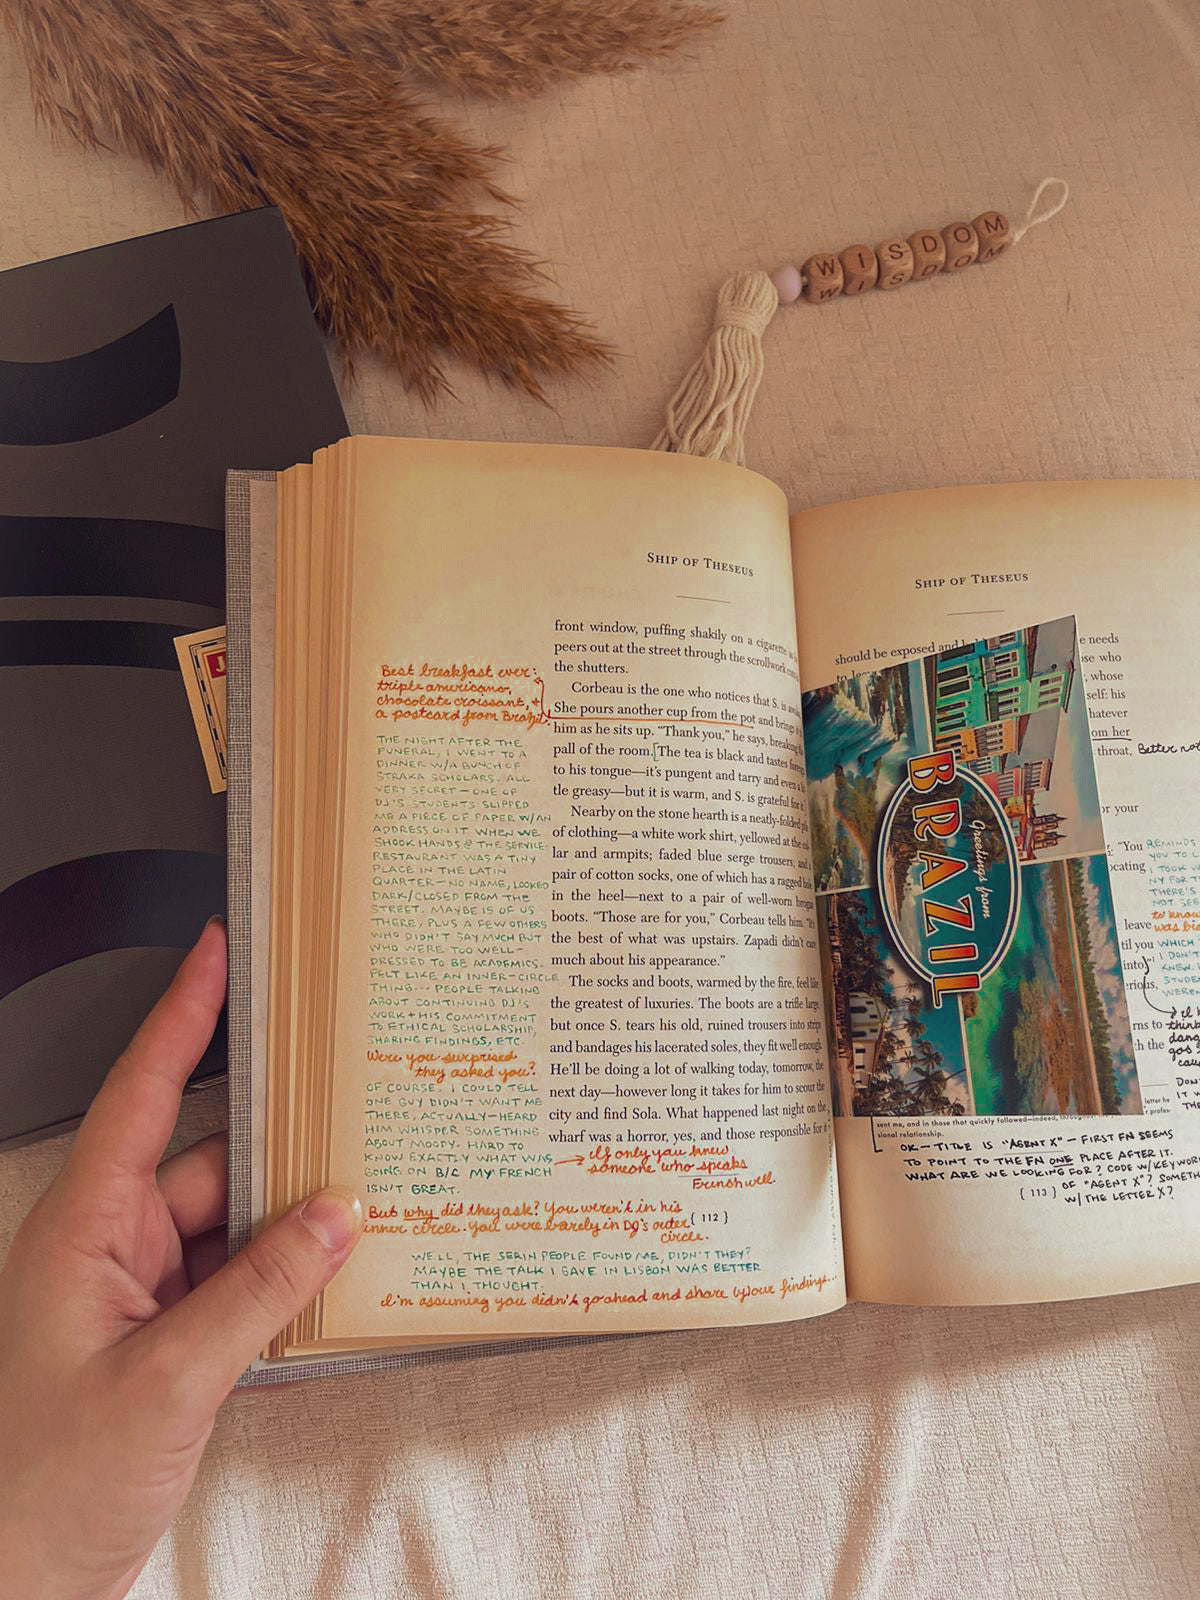 WISDOM
SHIP OF THESEUS
front window, puffing shakily on a cigarette
peers out at the street through the scrollwork
the shutters.
Corbeau is the one who notices that S. is
She pours another cup from the pot and brings
him as he sits up. “Thank you,” he says, breaking
pall of the room. The tea is black and tastes
to his tongue—it’s pungent and tarry and even a
tle greasy—but it is warm, and S. is grateful for it.
Nearby on the stone hearth is a neatly-folded
of clothing—a white work shirt, yellowed at the
lar and armpits; faded blue serge trousers; and
pair of cotton socks, one of which has a ragged hole
in the heel—next to a pair of well-worn brogan
boots. “Those are for you,” Corbeau tells him. “It’s
the best of what was upstairs. Zapadi didn’t care
much about his appearance.”
The socks and boots, warmed by the fire, feel like
the greatest of luxuries. The boots are a trifle large,
but once S. tears his old, ruined trousers into strips
and bandages his lacerated soles, they fit well enough.
He’ll be doing a lot of walking today, tomorrow, the
next day—however long it takes for him to scour the
city and find Sola. What happened last night on the
wharf was a horror, yes, and those responsible for it
{ 112 }
Best breakfast ever:
triple americano,
chocolate croissant, +
a postcard from Brazil.
THE NIGHT AFTER THE
FUNERAL, I WENT TO A
DINNER W/A BUNCH OF
STRAKA SCHOLARS. ALL
VERY SECRET – ONE OF
DJ'S STUDENTS SLIPPED
ME A PIECE OF PAPER W/AN
ADDRESS ON IT WHEN WE
SHOOK HANDS @ THE SERVICE.
RESTAURANT WAS A TINY
PLACE IN THE LATIN
QUARTER – NO NAME, LOOKED
DARK/CLOSED FROM THE
STREET. MAYBE 15 OF US
THERE, PLUS A FEW OTHERS
WHO DIDN'T SAY MUCH BUT
WHO WERE TOO WELL-
DRESSED TO BE ACADEMICS.
FELT LIKE AN INNER-CIRCLE
THING... PEOPLE TALKING
ABOUT CONTINUING DJ'S
WORK + HIS COMMITMENT
TO ETHICAL SCHOLARSHIP,
SHARING FINDINGS, ETC.
Were you surprised
they asked you?
OF COURSE. I COULD TELL
ONE GUY DIDN'T WANT ME
THERE, ACTUALLY – HEARD
HIM WHISPER SOMETHING
ABOUT MOODY. HARD TO
KNOW EXACTLY WHAT WAS
GOING ON B/C MY FRENCH
ISN'T GREAT.
If only you knew
someone who speaks
French well.
But why did they ask? You weren't in his
inner circle. You were barely in DJ's outer
circle.
WELL, THE SERIN PEOPLE FOUND ME, DIDN'T THEY?
MAYBE THE TALK I GAVE IN LISBON WAS BETTER
THAN I THOUGHT.
I'm assuming you didn't go ahead and share your findings...
SHIP OF THESEUS
should be exposed and
e needs
who
, whose
self: his
hatever
om her
throat,
Better not
or your
“You
ocating
leave
til you
into
erious,
rns to
h the
REMINDS
YOU TO
I TOOK
NY FOR
THERE'S
NOT SEE
to know
WHICH
I DON'T
KNEW.
STUDEN
WEREN
think
Greetings from
BRAZIL
sent me, and in those that quickly followed—indeed, throughout
sional relationship.
OK – TITLE IS "AGENT X" – FIRST FN SEEMS
TO POINT TO THE FN ONE PLACE AFTER IT.
WHAT ARE WE LOOKING FOR? CODE W/KEYWOR
OF "AGENT X"? SOMETH
W/THE LETTER X?
{ 113 }